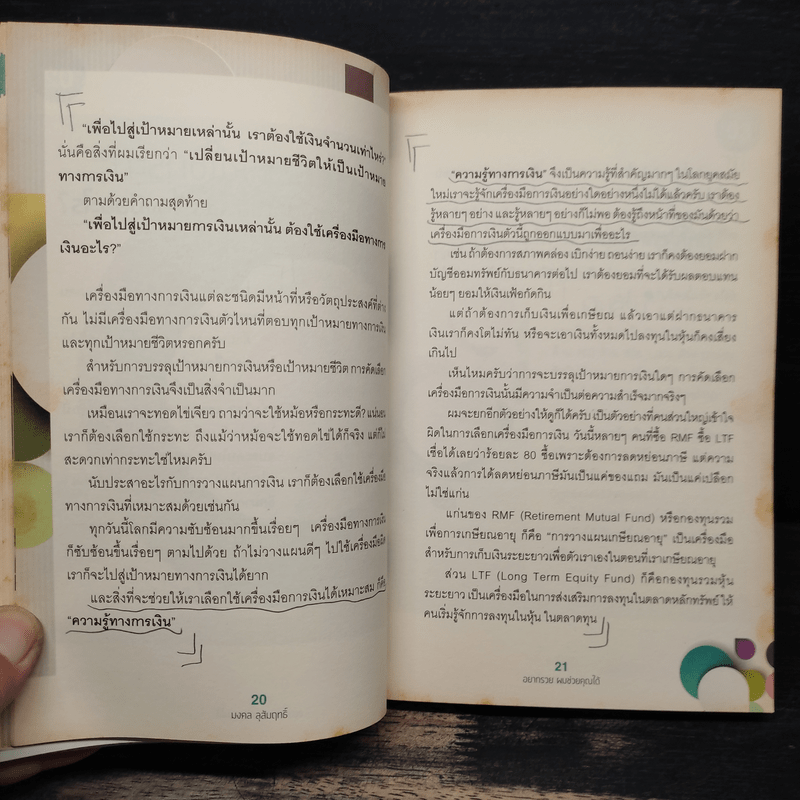 “เพื่อไปสู่เป้าหมายเหล่านั้น เราต้องใช้เงินจำนวนเท่าไหร่?”
นั่นคือสิ่งที่ผมเรียกว่า “เปลี่ยนเป้าหมายชีวิตให้เป็นเป้าหมาย
ทางการเงิน”
ตามด้วยคำถามสุดท้าย
“เพื่อไปสู่เป้าหมายการเงินเหล่านั้น ต้องใช้เครื่องมือทางการ
เงินอะไร?”
เครื่องมือทางการเงินแต่ละชนิดมีหน้าที่หรือวัตถุประสงค์ที่ต่าง
กัน ไม่มีเครื่องมือทางการเงินตัวไหนที่ตอบทุกเป้าหมายทางการเงิน
และทุกเป้าหมายชีวิตหรอกครับ
สำหรับการบรรลุเป้าหมายการเงินหรือเป้าหมายชีวิต การคัดเลือก
เครื่องมือทางการเงินจึงเป็นสิ่งจำเป็นมาก
เหมือนเราจะทอดไข่เจียว ถามว่าจะใช้หม้อหรือกระทะดี? แน่นอน
เราก็ต้องเลือกใช้กระทะ ถึงแม้ว่าหม้อจะใช้ทอดไข่ได้ก็จริง แต่ก็ไม่
สะดวกเท่ากระทะใช่ไหมครับ
นับประสาอะไรกับการวางแผนการเงิน เราก็ต้องเลือกใช้เครื่องมือ
ทางการเงินที่เหมาะสมด้วยเช่นกัน
ทุกวันนี้โลกมีความซับซ้อนมากขึ้นเรื่อยๆ เครื่องมือทางการเงิน
ก็ซับซ้อนขึ้นเรื่อยๆ ตามไปด้วย ถ้าไม่วางแผนดีๆ ไปใช้เครื่องมือผิด
เราก็จะไปสู่เป้าหมายทางการเงินได้ยาก
และสิ่งที่จะช่วยให้เราเลือกใช้เครื่องมือการเงินได้เหมาะสม ก็คือ
“ความรู้ทางการเงิน”
20
มงคล ลุสัมฤทธิ์
“ความรู้ทางการเงิน” จึงเป็นความรู้ที่สำคัญมากๆ ในโลกยุคสมัย
ใหม่เราจะรู้จักเครื่องมือการเงินอย่างใดอย่างหนึ่งไม่ได้แล้วครับ เราต้อง
รู้หลายๆ อย่าง และรู้หลายๆ อย่างก็ไม่พอ ต้องรู้ถึงหน้าที่ของมันด้วยว่า
เครื่องมือการเงินตัวนี้ถูกออกแบบมาเพื่ออะไร
เช่น ถ้าต้องการสภาพคล่อง เบิกง่าย ถอนง่าย เราก็คงต้องยอมฝาก
บัญชีออมทรัพย์กับธนาคารต่อไป เราต้องยอมที่จะได้รับผลตอบแทน
น้อยๆ ยอมให้เงินเฟ้อกัดกิน
แต่ถ้าต้องการเก็บเงินเพื่อเกษียณ แล้วเอาแต่ฝากธนาคาร
เงินเราก็คงโตไม่ทัน หรือจะเอาเงินทั้งหมดไปลงทุนในหุ้นก็คงเสี่ยง
เกินไป
เห็นไหมครับว่าการจะบรรลุเป้าหมายการเงินใดๆ การคัดเลือก
เครื่องมือการเงินนั้นมีความจำเป็นต่อความสำเร็จมากจริงๆ
ผมจะยกอีกตัวอย่างให้ดูก็ได้ครับ เป็นตัวอย่างที่คนส่วนใหญ่เข้าใจ
ผิดในการเลือกเครื่องมือการเงิน วันนี้หลายๆ คนที่ซื้อ RMF ซื้อ LTF
เชื่อได้เลยว่าร้อยละ 80 ซื้อเพราะต้องการลดหย่อนภาษี แต่ความ
จริงแล้วการได้ลดหย่อนภาษีมันเป็นแค่ของแถม มันเป็นแค่เปลือก
ไม่ใช่แก่น
แก่นของ RMF (Retirement Mutual Fund) หรือกองทุนรวม
เพื่อการเกษียณอายุ ก็คือ “การวางแผนเกษียณอายุ” เป็นเครื่องมือ
สำหรับการเก็บเงินระยะยาวเพื่อตัวเราเองในตอนที่เราเกษียณอายุ
ส่วน LTF (Long Term Equity Fund) ก็คือกองทุนรวมหุ้น
ระยะยาว เป็นเครื่องมือในการส่งเสริมการลงทุนในตลาดหลักทรัพย์ ให้
คนเริ่มรู้จักการลงทุนในหุ้น ในตลาดทุน
21
อยากรวย ผมช่วยคุณได้